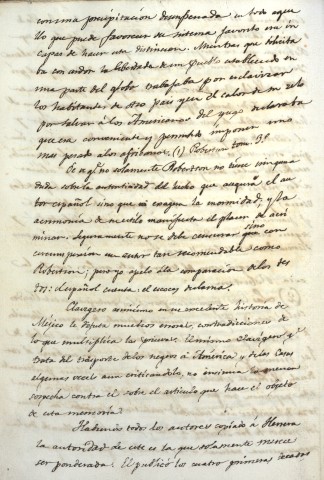 con una precipitacion desenfrenada en todo aque
llo que puede favorecer su sistema favorito era in
capaz de hacer esta distincion. Mientras que solicita
ba con ardor la libertad de un Pueblo establecido en
una parte del globo trabajaba por esclavizar
los habitantes de otro pais y en el calor de su zelo
por salvar á los Americanos del yugo declaraba
que era conveniente y permitido imponer uno
mas pesado á los africanos. (1) Robertson tom. 3º
Se ve qe. no solamente Robertson no tiene ninguna
duda sobre la autenticidad del hecho que asegura el au
tor español sino que exagera la enormidad, y la
acrimonia de su estilo manifiesta el placer de acri
minar. Seguramente no se debe censurar sino con
circunspeccion un autor tan recomendable como
Robertson; pero yo apelo á la comparacion de los tes
tos: el español cuenta: el escoces declama.
Clavigero anónimo en su excelente historia de
Méjico le disputa muchos errores, contradicciones de
lo que multiplica las pruebas. El mismo Clavigero qe.
trata del trasporte de los negros á América y de las Casas
algunas veces aun criticandolo, no insinua la menor
sospecha contra él sobre el articulo que hace el objeto
de esta memoria.
Habiendo todos los autores copiado á Herrera
la autoridad de este es la que solamente merece
ser ponderada. El publicó las cuatro primeras decadas